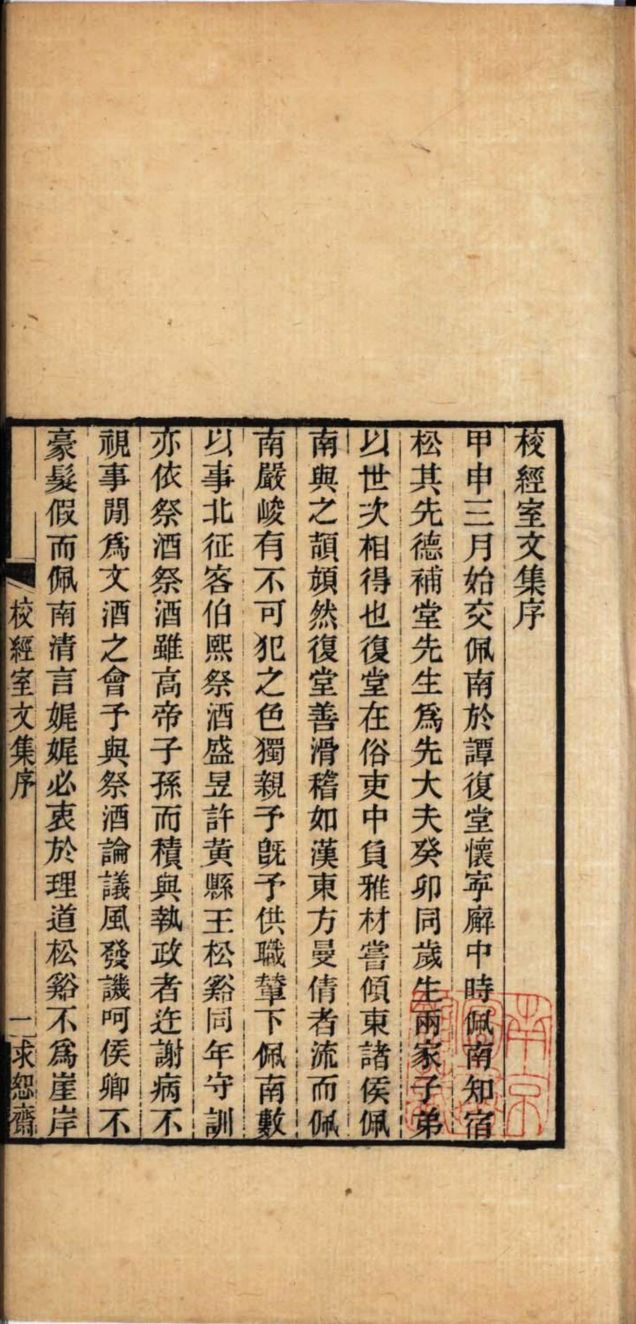 校經室文集序
甲申三月始交佩南於譚復堂懷寧廨中時佩南知宿
松其先德補堂先生爲先大夫癸卯同歲生兩家子弟
以世次相得也復堂在俗吏中負雅材嘗傾東諸侯佩
南與之頡頏然復堂善滑稽如漢東方曼倩者流而佩
南嚴峻有不可犯之色獨親予旣予供職輦下佩南數
以事北征客伯熙祭酒盛昱許黃縣王松谿同年守訓
亦依祭酒祭酒雖高帝子孫而積與執政者迕謝病不
視事閒爲文酒之會予與祭酒論議風發譏呵侯卿不
豪髮假而佩南清言娓娓必衷於理道松谿不爲崖岸
校經室文集序
一
求恕齋